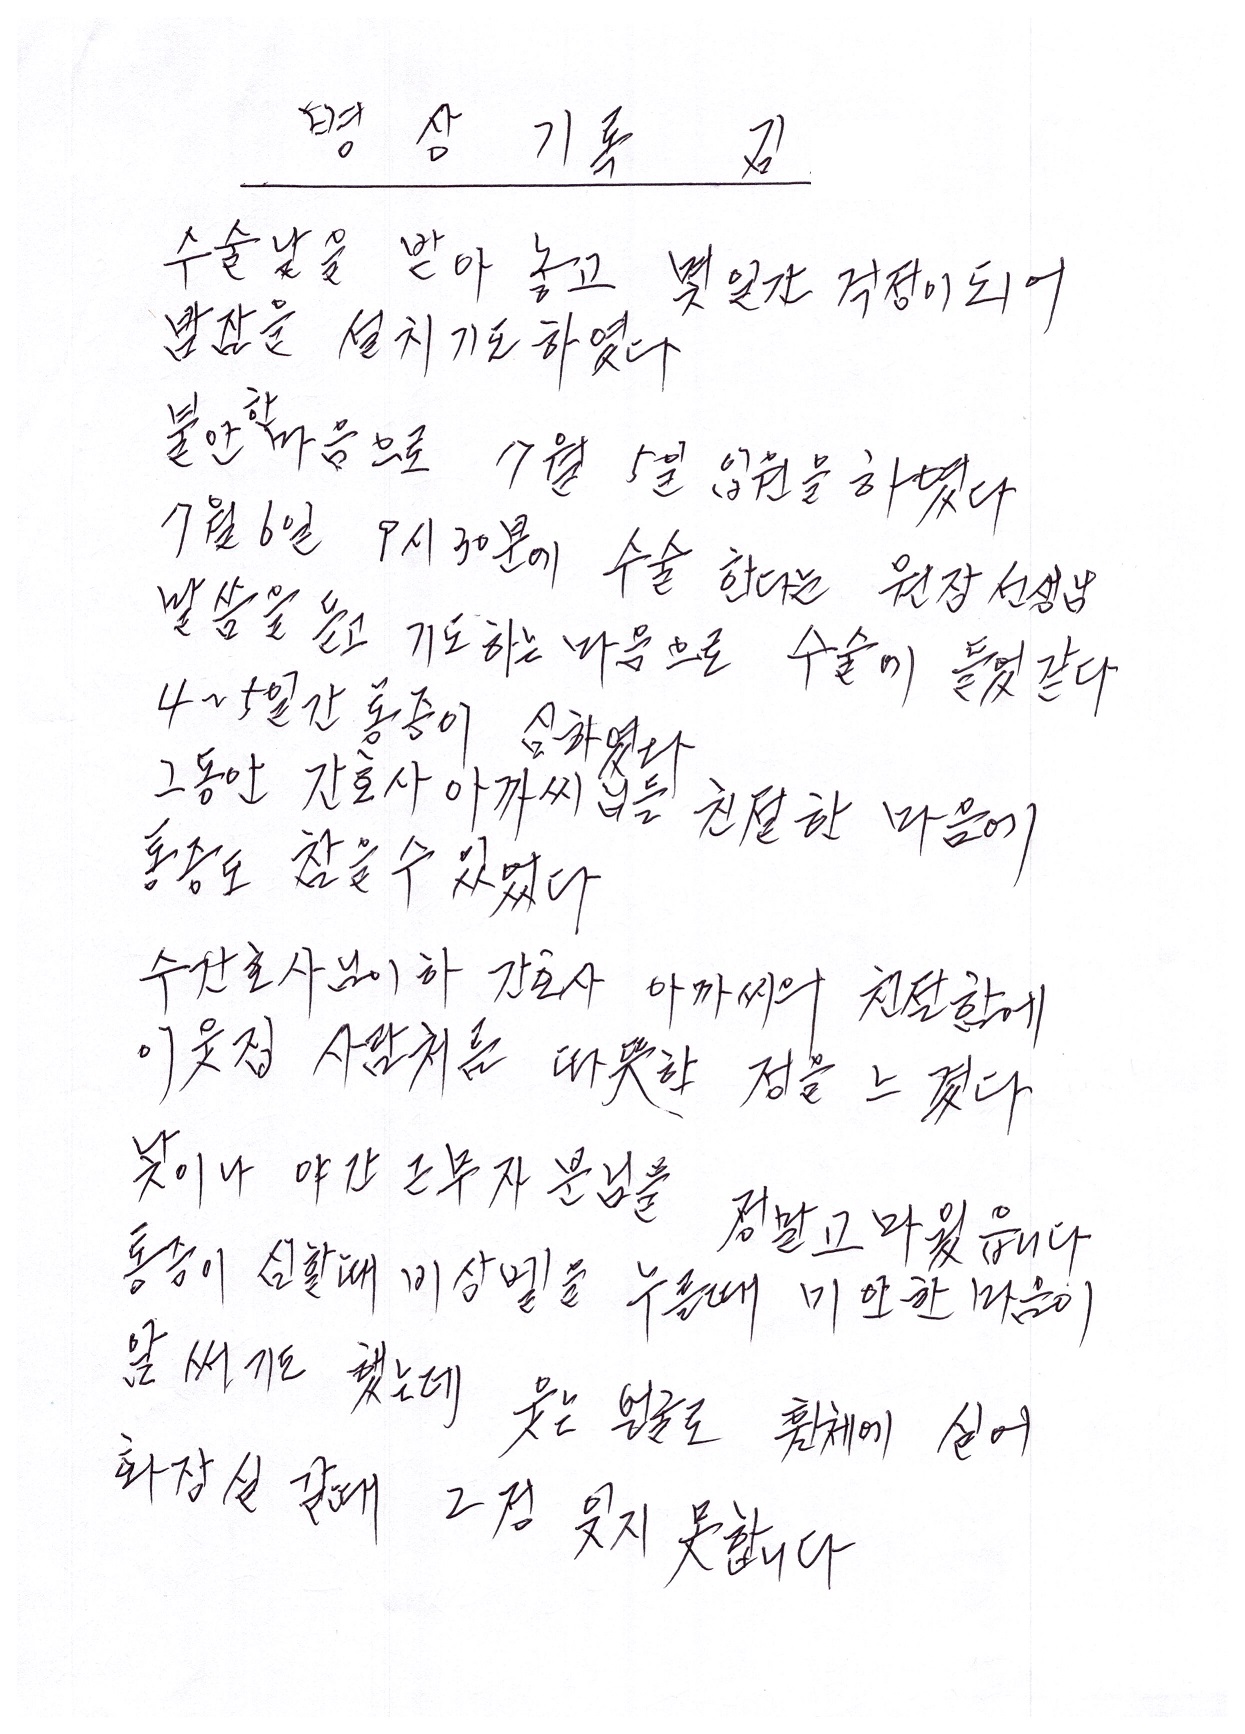 병상기록 김
수술날을 받아 놓고 몇일간 걱정이되어
밤잠을 설치기도하였다
불안한마음으로 7월 5일 입원을 하였다
7월6일 9시30분에 수술 한다는 원장선생님
말씀을 듣고 기도하는 마음으로 수술에 들었갔다
4~5일간 통증이 심하였다
그동안 간호사 아까씨님들 친절한 마음에
통증도 참을수 있었다
수간호사님이하 간호사 아까씨의 친절함에
이웃집 사람처름 따뜻한 정을 느꼈다
낮이나 야간근무자 분님들 정말고마웠읍니다
통증이 심할때 비상벨을 누를때 미안한마음이
앞써기도 했는데 웃는 얼굴로 휠체에 실어
화장실 갈때 그정 잊지못합니다